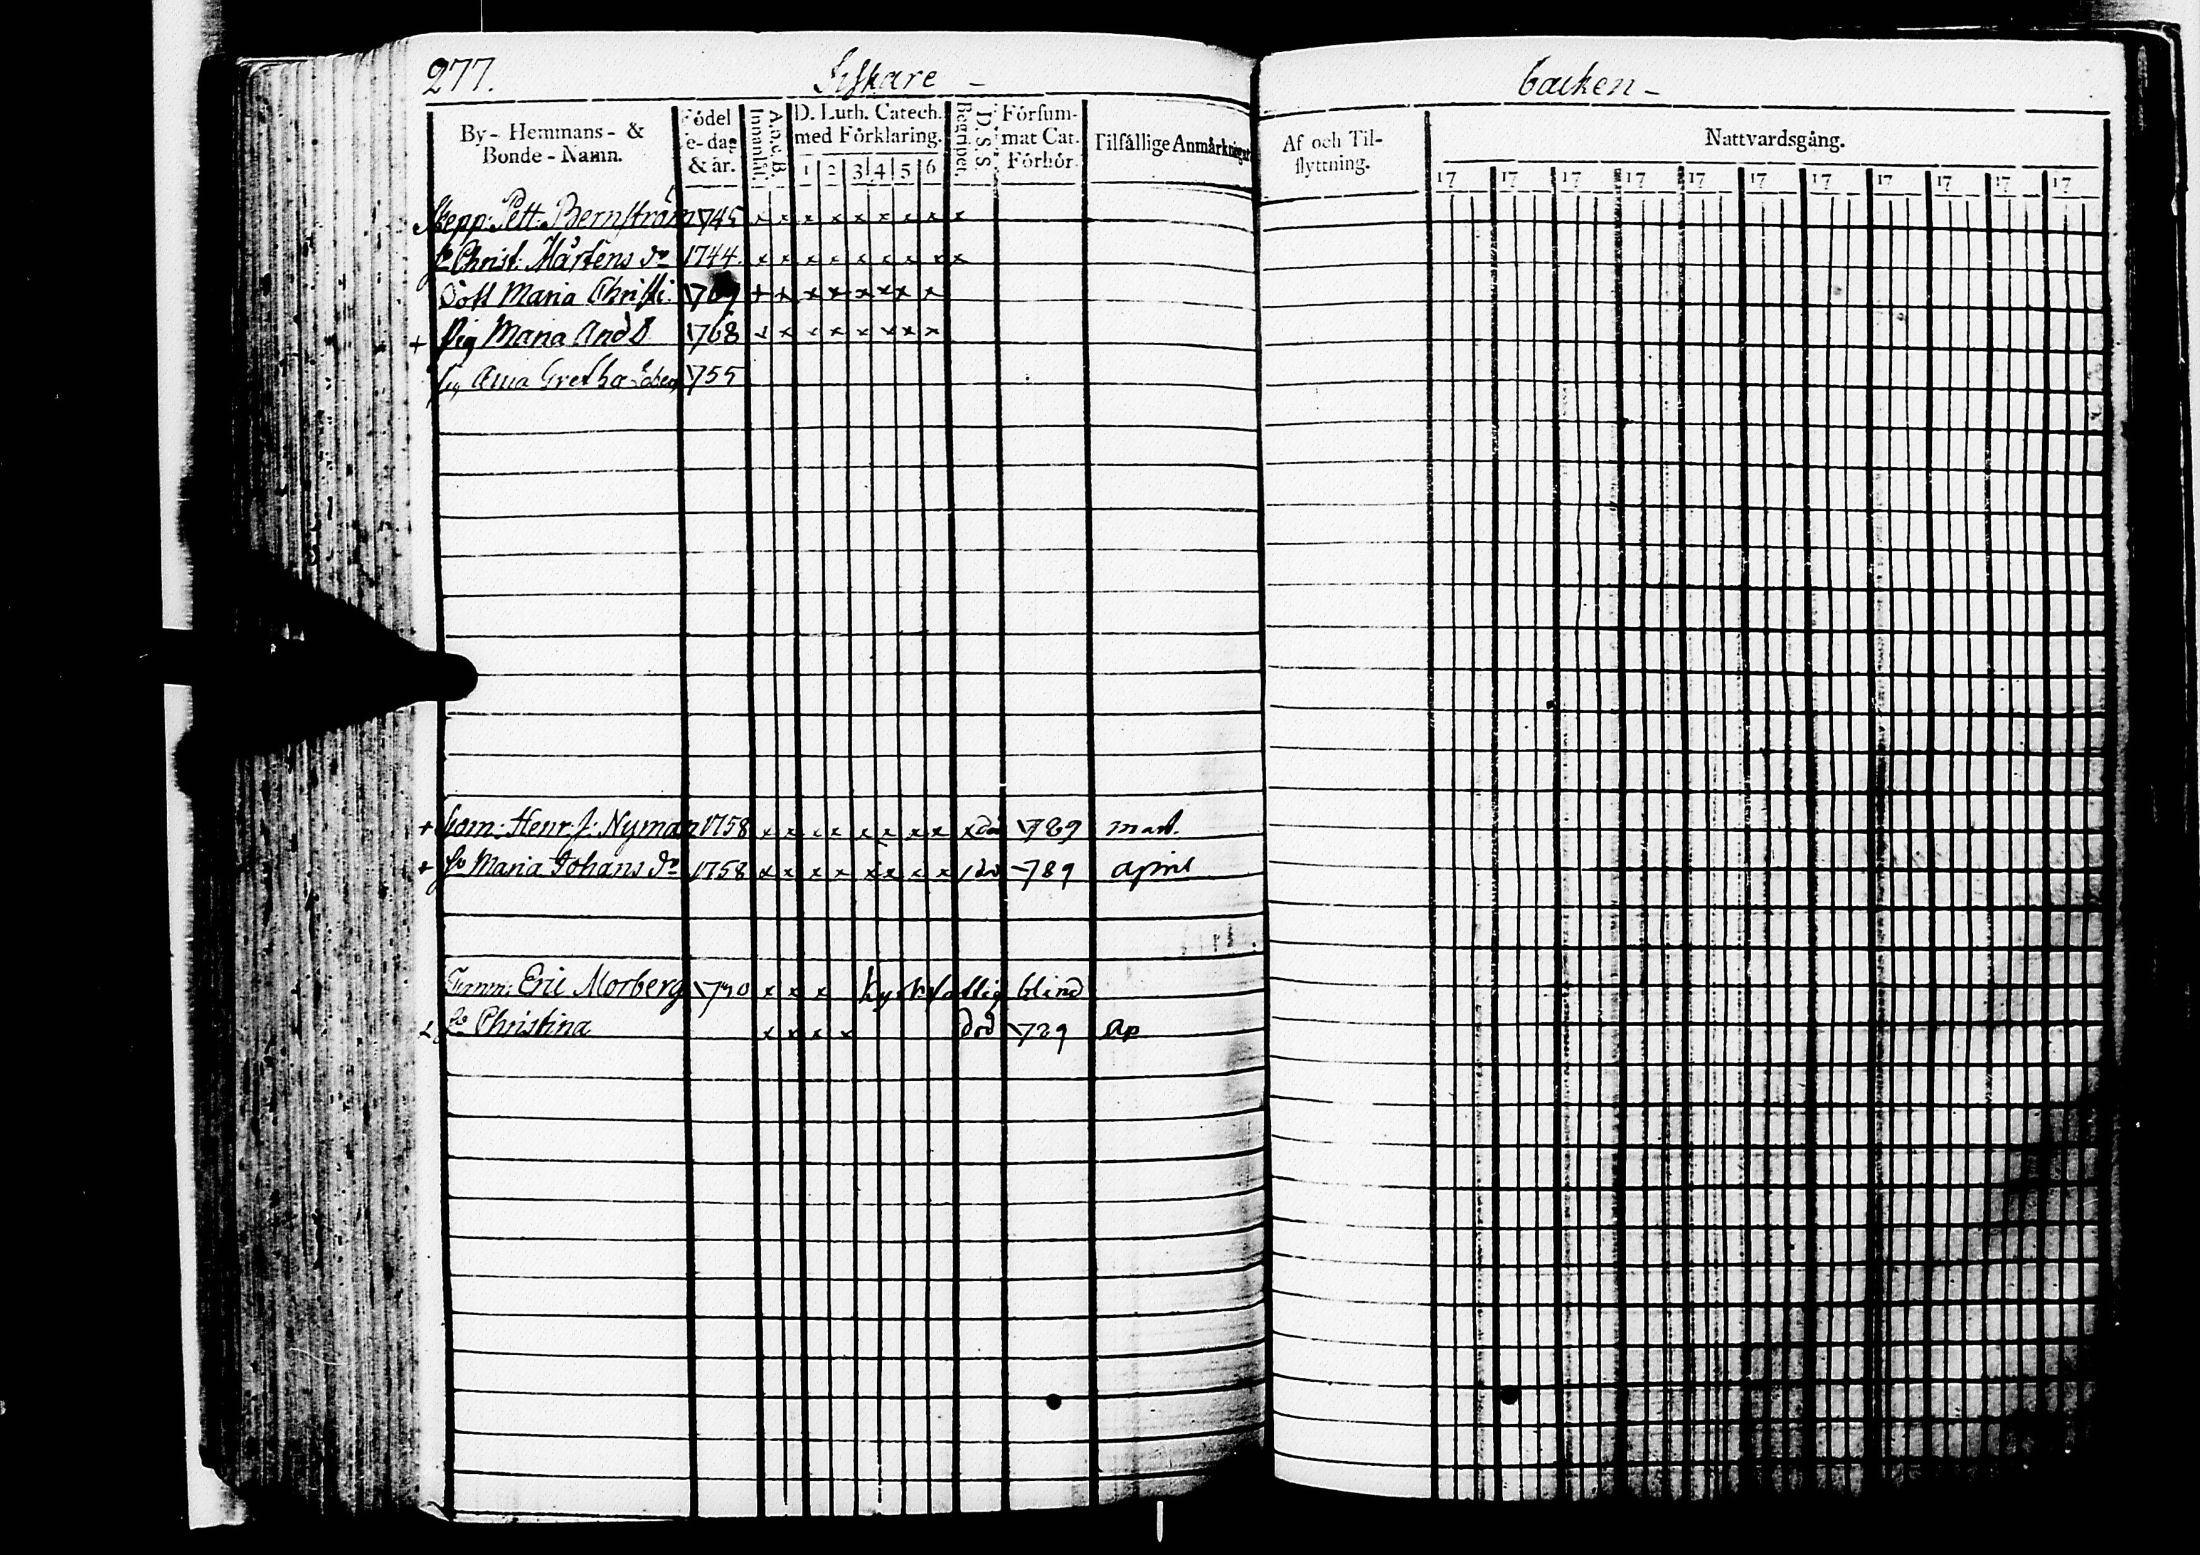 277. Fiskare - backen -
By- Hemmans- & Bonde-Namn.
Födelse-dag & år.
A.b.c.B. Innanläs.
D. Luth. Catech. med Förklaring.
1 2 3 4 5 6
D.S.S. Begripet.
Försummat Cat. Förhör.
Tilfällige Anmärkningar
Af och Tilflyttning.
Nattvardsgång.
17 17 17 17 17 17 17 17 17 17 17
Skepp: Pett: Bernström 1745 x x x x x x x x x
h Christ: Mårtens dr 1744 x x x x x x x x x
Dott Maria Christi: 1769 + x x x x x x x
+ Pig Maria And D 1768 x x x x x x x x
Anna Gretha 1755
+ Henr. J: Nyman 1758 x x x x x x x x x död 1789 mart.
+ h Maria Johans dr 1758 x x x x x x x x död 1789 April
Timm: Eric Morberg x x x fattig blind
h Christina x x x x död 1789 Ap